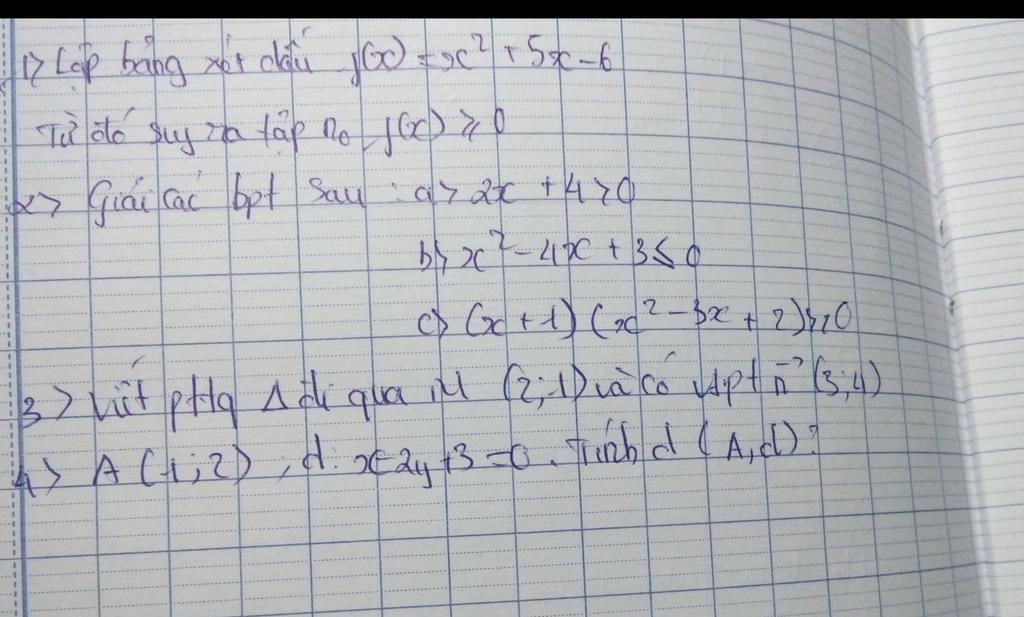 1> Lập bảng xét dấu f(x) = x² + 5x - 6
Từ đó suy ra tập n₀ f(x) ≥ 0
2> Giải các bpt sau : a> 2x + 4 > 0
b> x² - 4x + 3 ≤ 0
c> (x + 1) (x² - 3x + 2) ≥ 0
3> Viết pttq Δ đi qua M (2;-1) và có vtpt n→ (3;4)
4> A (1;2) , d: x-2y+3=0. Tính d (A,d)?